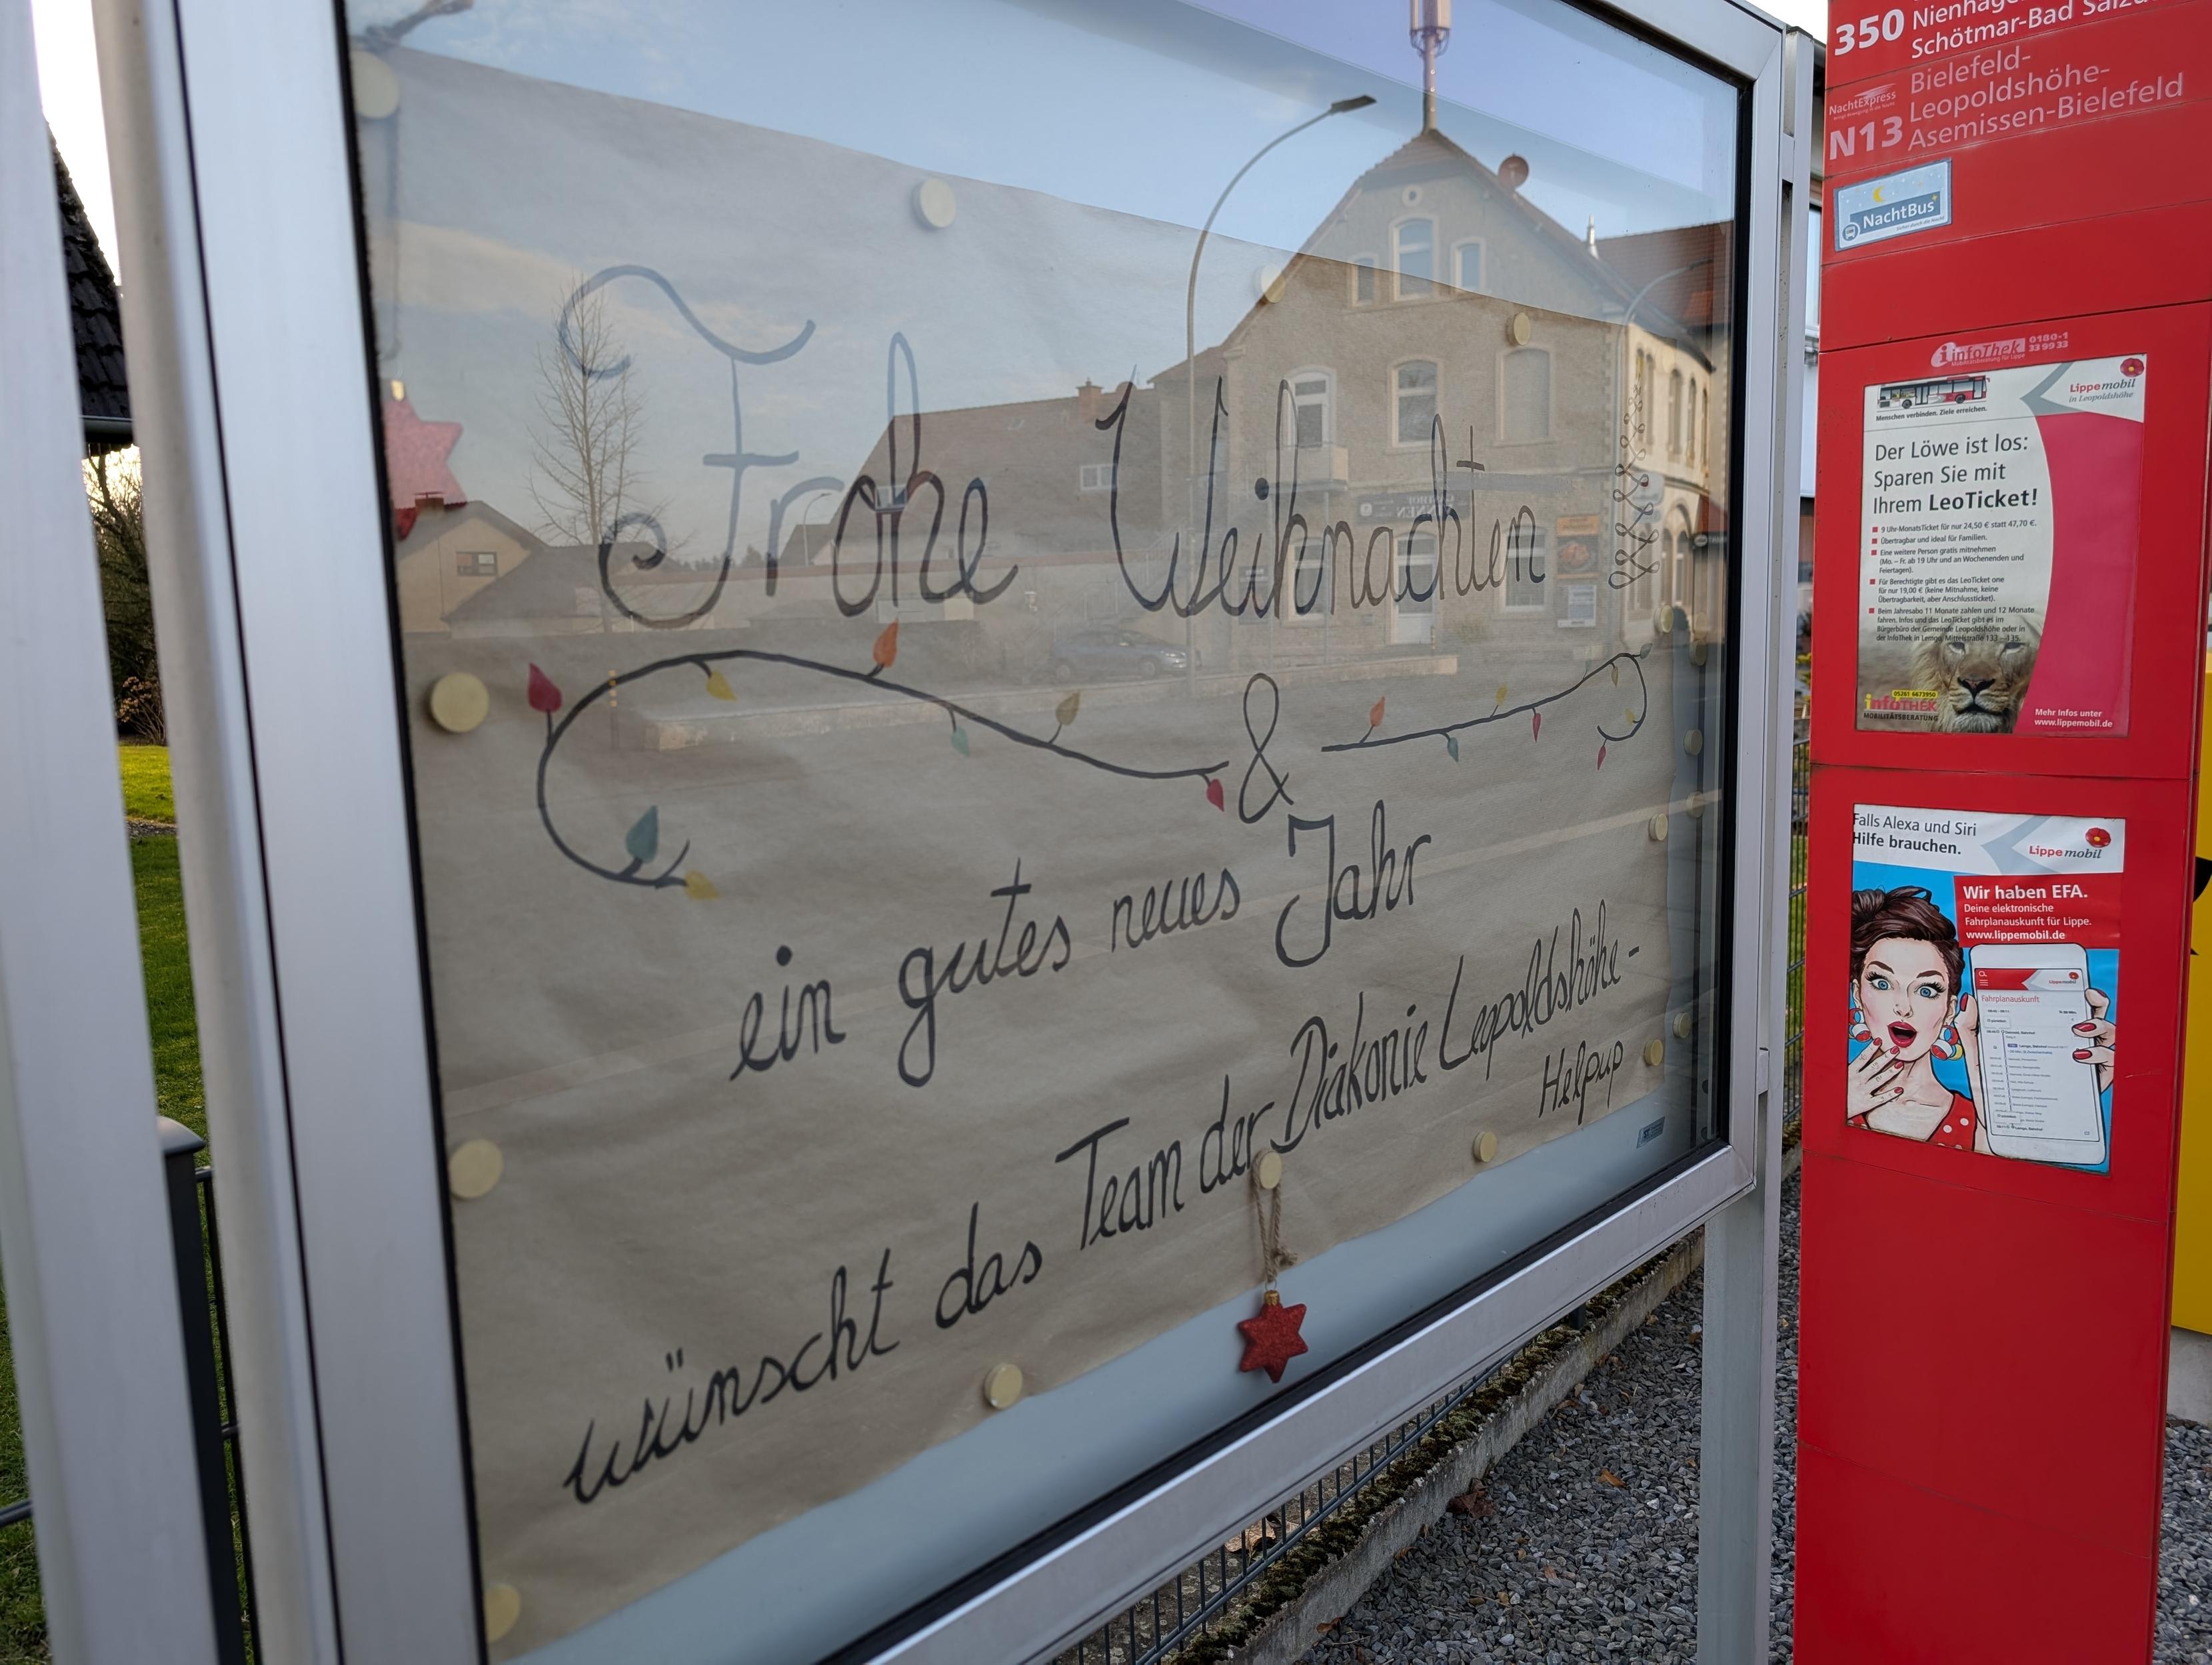 Frohe Weihnachten
&
ein gutes neues Jahr
wünscht das Team der Diakonie Leopoldshöhe-
Helpup
350
Schötmar-Bad
NachtExpress
N13
Bielefeld-
Leopoldshöhe-
Asemissen-Bielefeld
NachtBus
infoThek 0180-1
33 99 33
Lippemobil
in Leopoldshöhe
Menschen verbinden. Ziele erreichen.
Der Löwe ist los:
Sparen Sie mit
Ihrem LeoTicket!
9 Uhr-MonatsTicket für nur 24,50 € statt 47,70 €.
Übertragbar und ideal für Familien.
Eine weitere Person gratis mitnehmen
(Mo. – Fr. ab 19 Uhr und an Wochenenden und
Feiertagen).
Für Berechtigte gibt es das LeoTicket one
für nur 19,00 € (keine Mitnahme, keine
Übertragbarkeit, aber Anschlussticket).
Beim Jahresabo 11 Monate zahlen und 12 Monate
fahren. Infos und das LeoTicket gibt es im
Bürgerbüro der Gemeinde Leopoldshöhe oder in
der InfoThek in Lemgo, Mittelstraße 133 – 135.
05261 6673950
infoTHEK
MOBILITÄTSBERATUNG
Mehr Infos unter
www.lippemobil.de
Falls Alexa und Siri
Hilfe brauchen.
Lippemobil
Wir haben EFA.
Deine elektronische
Fahrplanauskunft für Lippe.
www.lippemobil.de
Fahrplanauskunft